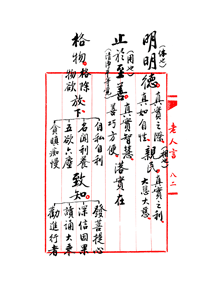 老人言 八二
明明德
(体也)
真實之際
真如自性
親民
(相也)
真實之利
大慈大悲
止於至善
(用也)
真實智慧
善巧方便
落實在
格物
格除
物欲
放下
自私自利
名聞利養
五欲六塵
貪瞋痴慢
致知
發菩提心
深信因果
讀誦大乘
勸進行者